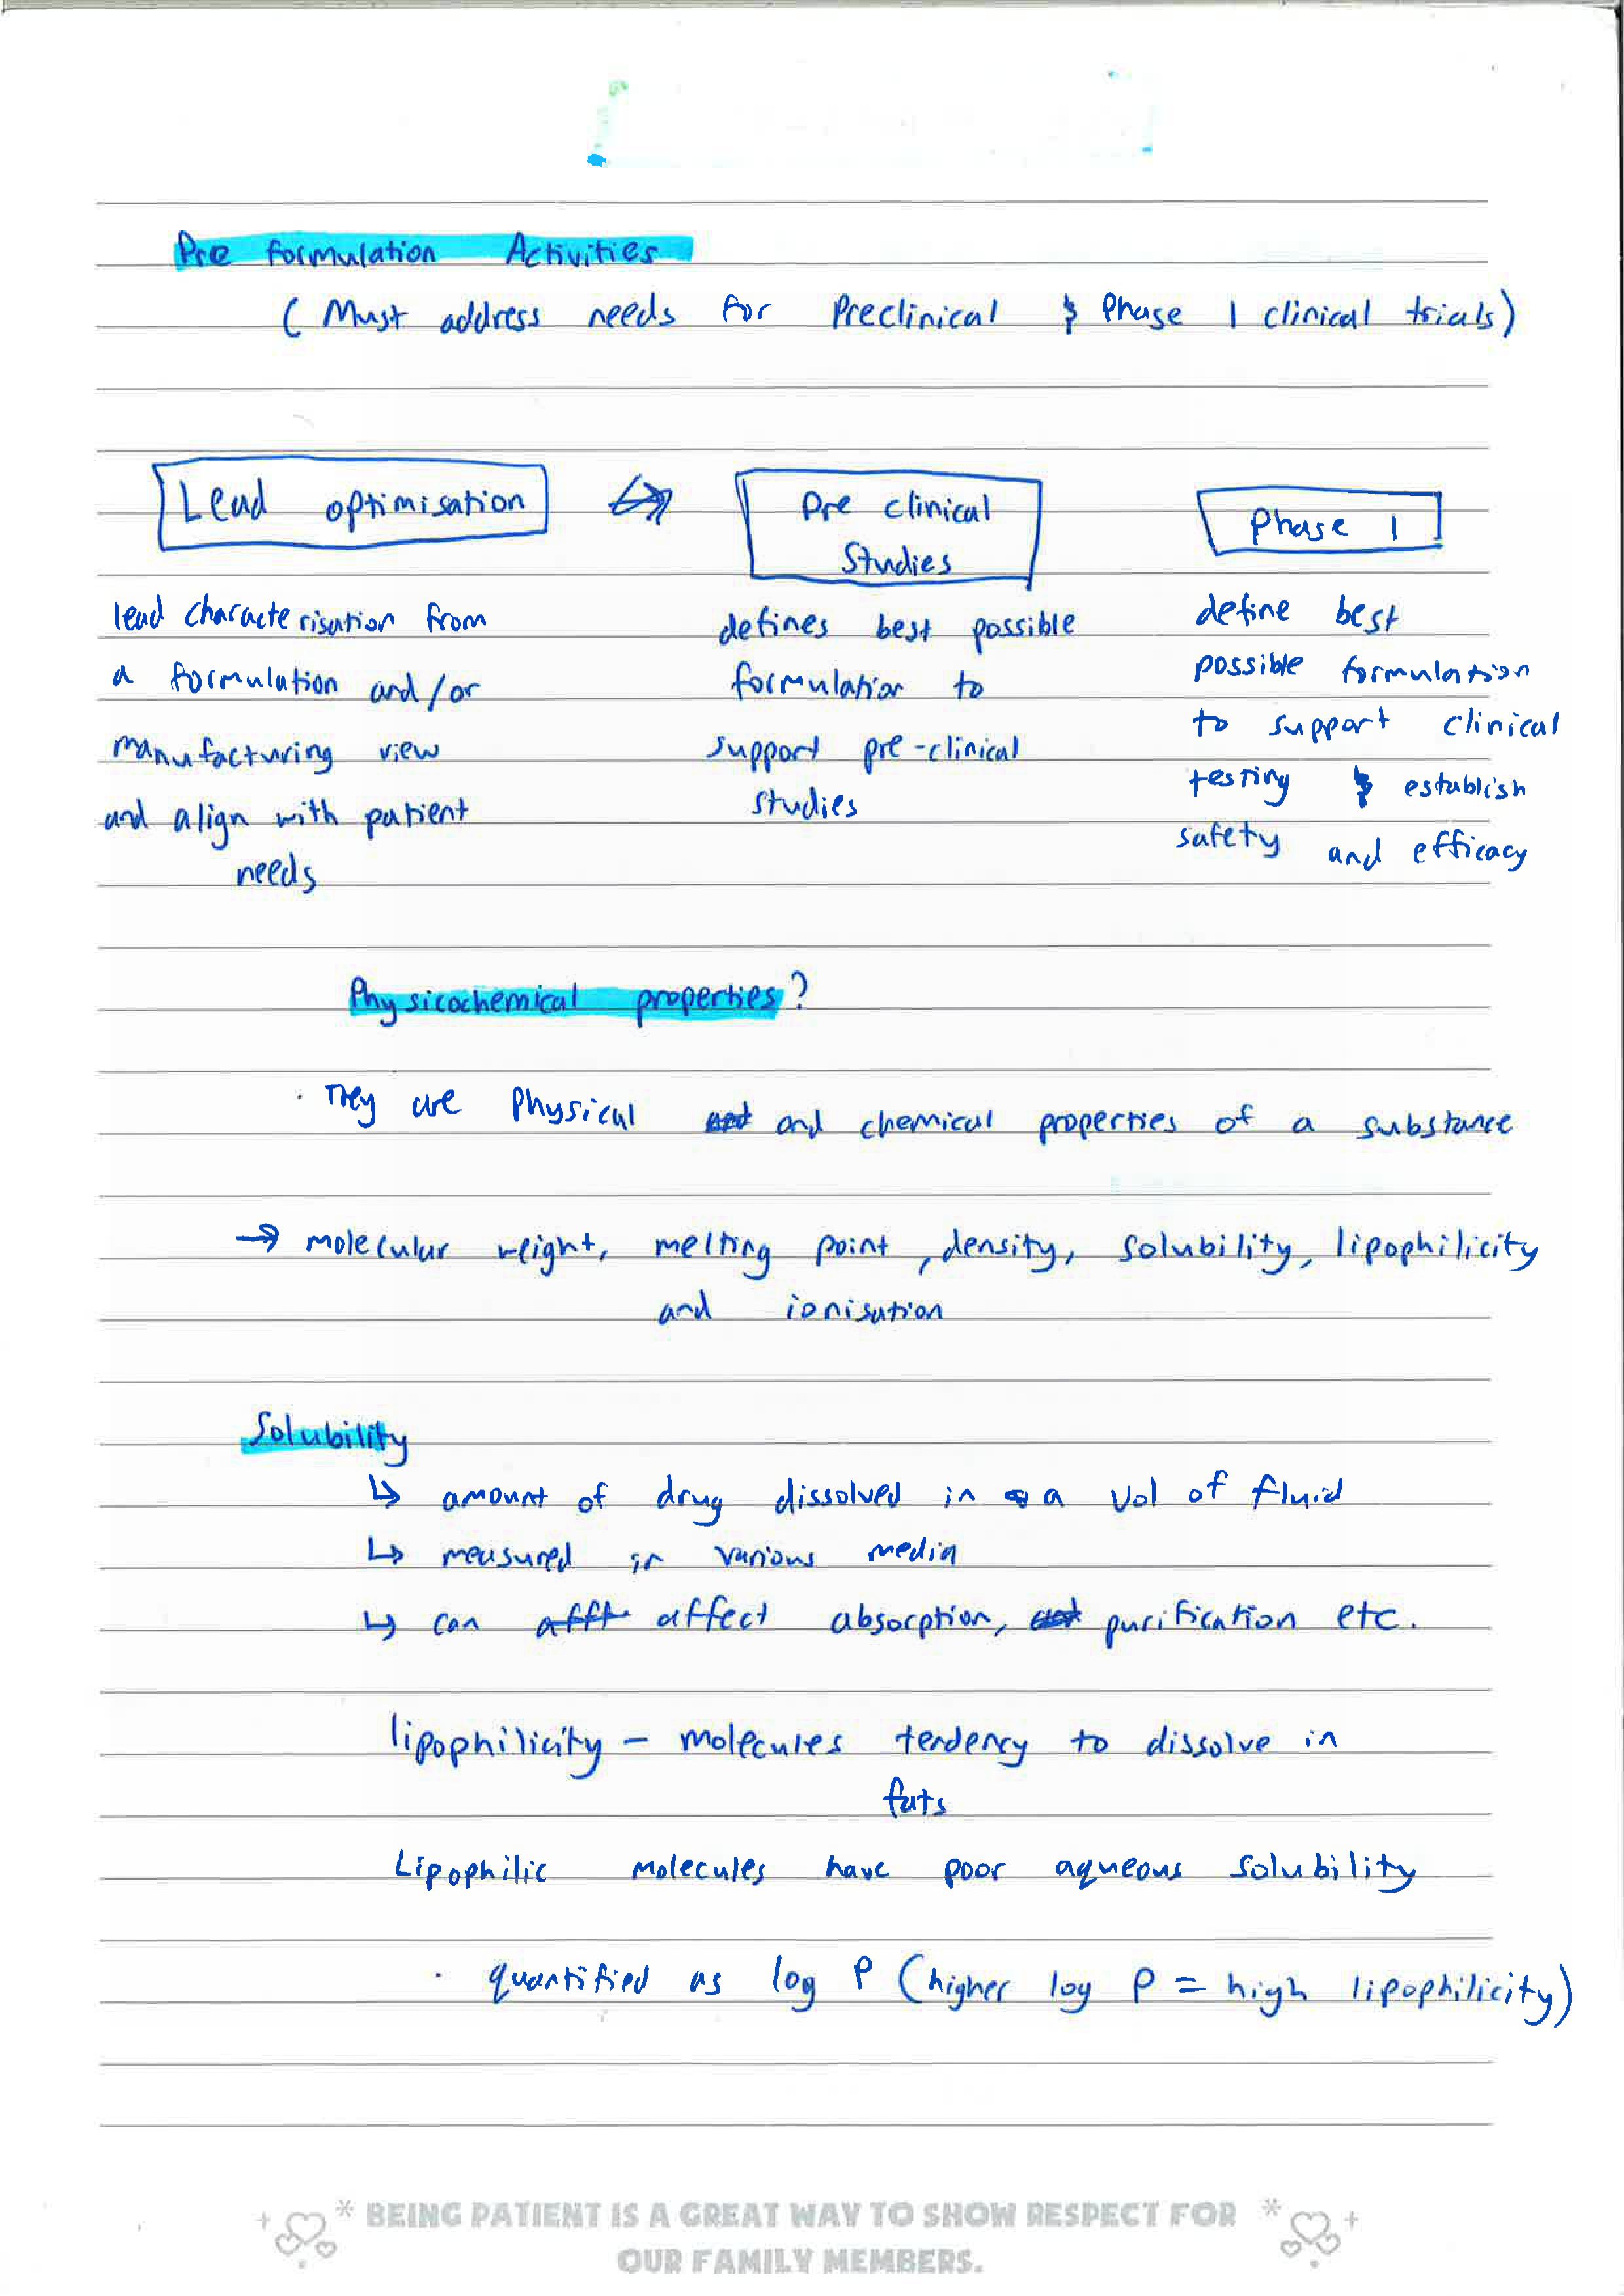 Pre formulation Activities
( Must address needs for Preclinical & Phase 1 clinical trials)
Lead optimisation
lead characterisation from
a formulation and/or
manufacturing view
and align with patient
needs
Pre clinical
Studies
defines best possible
formulation to
support pre-clinical
studies
Phase 1
define best
possible formulation
to support clinical
testing & establish
safety and efficacy
Physicochemical properties?
· They are Physical and chemical properties of a substance
→ molecular weight, melting point, density, solubility, lipophilicity
and ionisation
Solubility
↳ amount of drug dissolved in a vol of fluid
↳ measured in various media
↳ can affect absorption, purification etc.
lipophilicity - molecules tendency to dissolve in
fats
Lipophilic molecules have poor aqueous solubility
· quantified as log P (higher log P = high lipophilicity)
* BEING PATIENT IS A GREAT WAY TO SHOW RESPECT FOR *
OUR FAMILY MEMBERS.